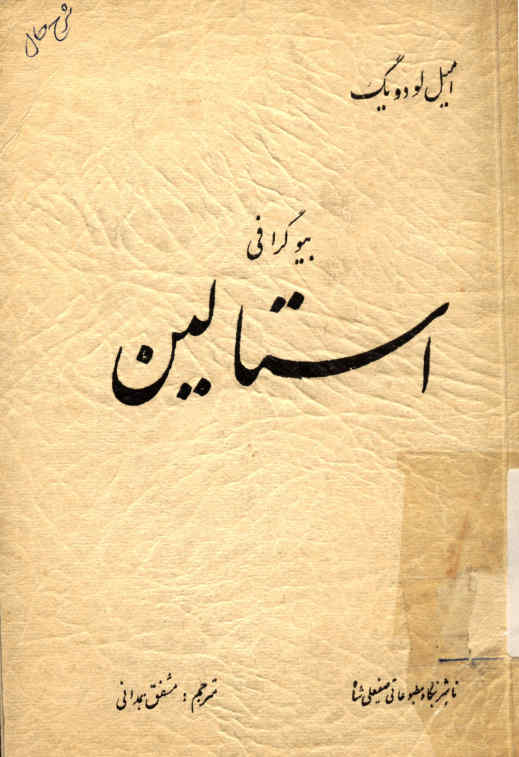 شرح حال
امیل لودویگ
بیوگرافی
استالین
ناشر: بنگاه مطبوعاتی صفیعلی شاه
مترجم: مشفق همدانی